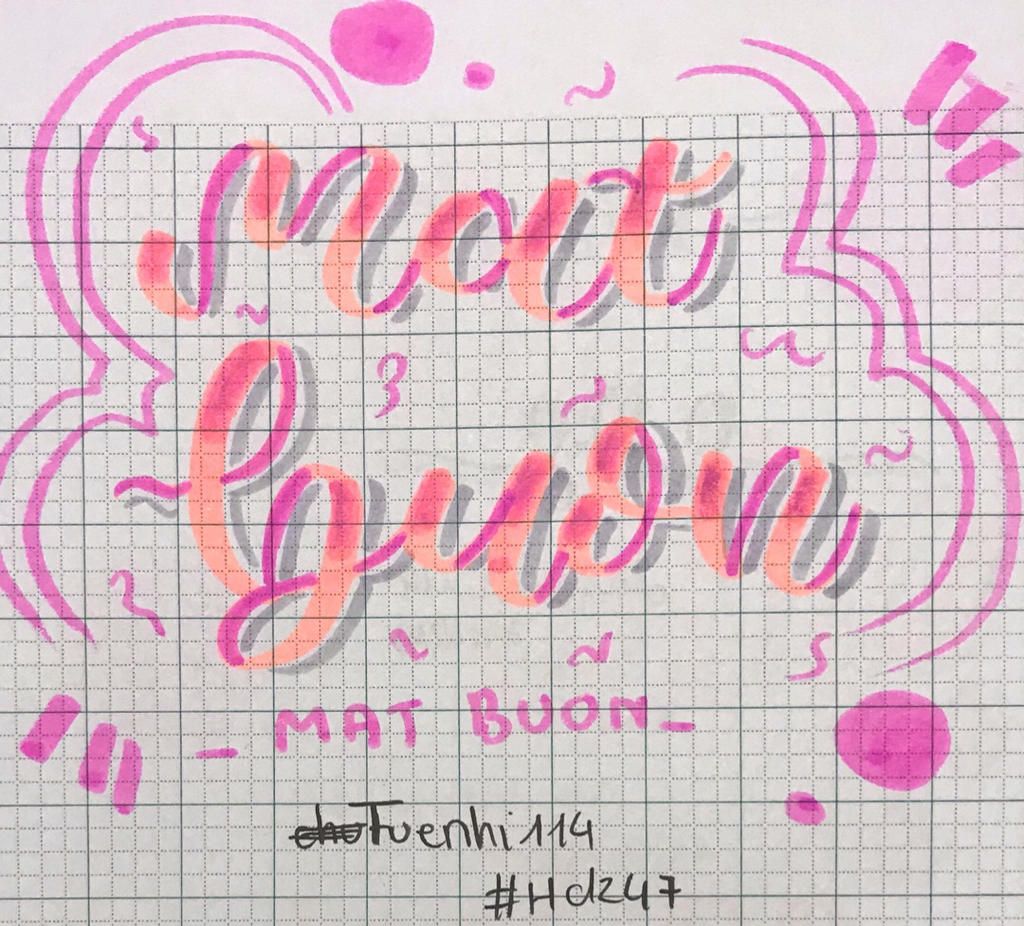 mat
buon
_ MAT BUON _
cho Tuenhi114
#Hdz47